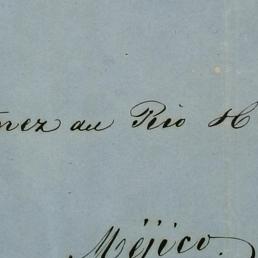 rez del Rio H
Méjico.